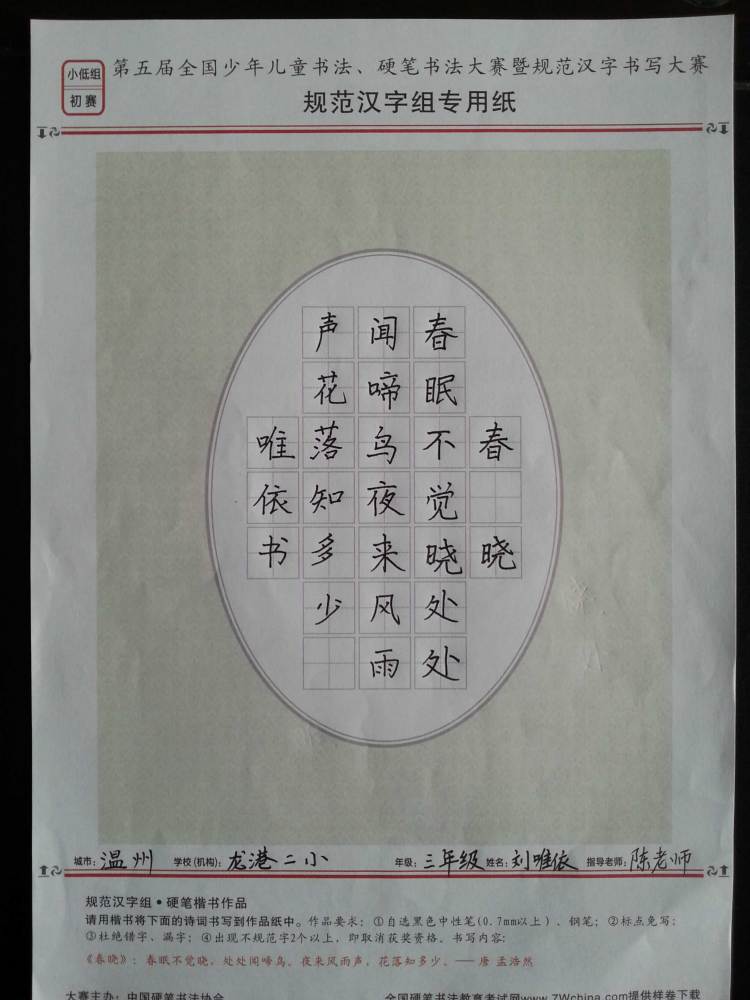 小低组
初赛
第五届全国少年儿童书法、硬笔书法大赛暨规范汉字书写大赛
规范汉字组专用纸
春晓
春眠不觉晓处处
闻啼鸟夜来风雨
声花落知多少
唯依书
城市：温州 学校(机构)：龙港二小 年级：三年级 姓名：刘唯依 指导老师：陈老师
规范汉字组•硬笔楷书作品
请用楷书将下面的诗词书写到作品纸中。作品要求：①自选黑色中性笔(0.7mm以上)、钢笔；②标点免写；
③杜绝错字、漏字；④出现不规范字2个以上，即取消获奖资格。书写内容：
《春晓》：春眠不觉晓，处处闻啼鸟。夜来风雨声，花落知多少。——唐 孟浩然
大赛主办：中国硬笔书法协会 全国硬笔书法教育考试网www.7Wchina.com提供样卷下载